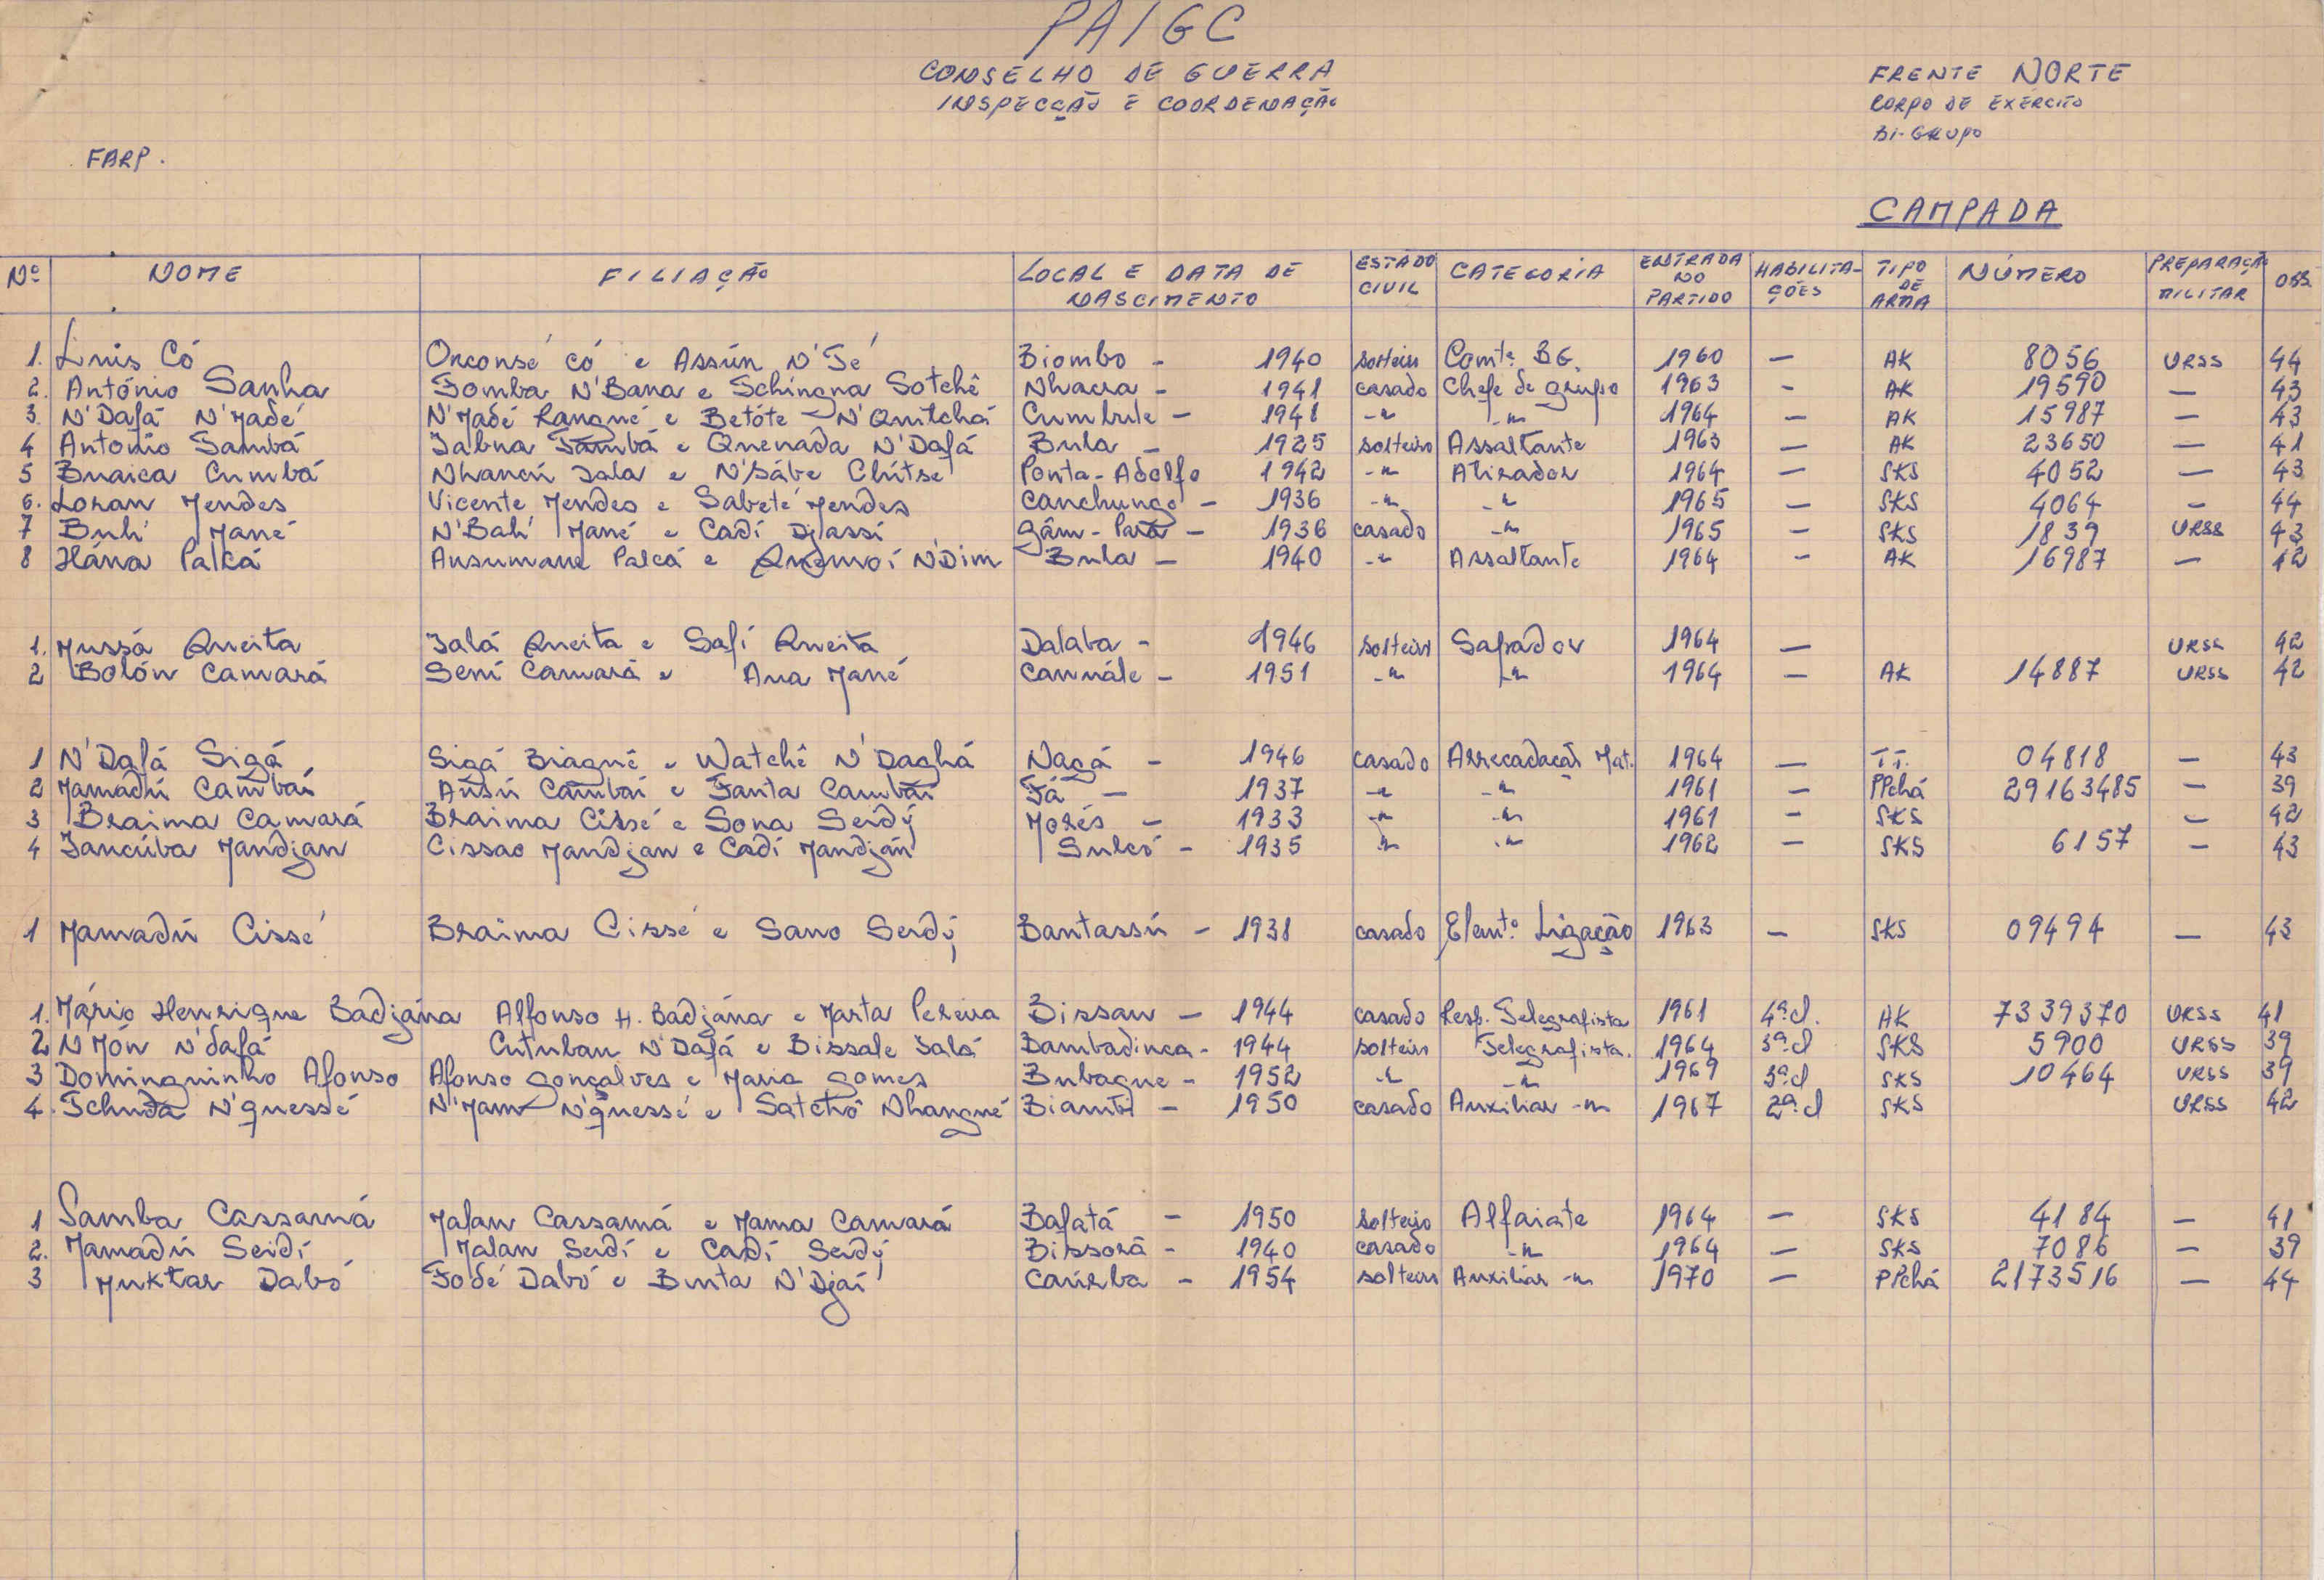 PAIGC
CONSELHO DE GUERRA
INSPECÇÃO E COORDENAÇÃO
FRENTE NORTE
CORPO DE EXÉRCITO
BI-GRUPO
FARP.
CAMPADA
Nº NOME FILIAÇÃO LOCAL E DATA DE NASCIMENTO ESTADO CIVIL CATEGORIA ENTRADA NO PARTIDO HABILITAÇÕES TIPO DE ARMA NÚMERO PREPARAÇÃO MILITAR OBS.
1. Luis Có Orconsé có e Assún N'Té Biombo - 1940 solteiro Comte. BG. 1960 — AK 8056 URSS 44
2. António Sanha Tomba N'Bana e Schingna Sotchê Nhacra - 1941 casado Chefe de grupo 1963 - AK 19590 — 43
3. N'Dafá N'Madé N'Madé Rangné e Betóte N'Quitchá Cumbule - 1941 -"- -"- 1964 — AK 15987 — 43
4 Antonio Sambá Iabna Tambá e Quenada N'Dafá Bula - 1925 solteiro Assaltante 1963 — AK 23650 — 41
5 Buaica Cumbá Nhancú Iala e N'Sábe Clútse Ponta-Adolfo 1942 -"- Atirador 1964 — SKS 4052 — 43
6. Loran Mendes Vicente Mendes e Sabeté Mendes Canchungo - 1936 -"- -"- 1965 — SKS 4064 - 44
7 Buli Mané N'Bali Mané e Cadi Djassi Gám-Pará - 1936 casado -"- 1965 — SKS 1839 URSS 43
8 Hána Palcá Ansumane Palcá e Quemoi N'Dim Bula — 1940 -"- Assaltante 1964 - AK 16987 — 42
1. Mussá Queita Ialá Queita e Safi Queita Dalaba - 1946 solteiro Sapador 1964 — URSS 42
2 Bolón Camará Seni Camará e Ana Mané Camnále - 1951 -"- -"- 1964 — AK 14887 URSS 42
1 N'Dafá Sigá Sigá Biagné e Watchê N'Daghá Nagá - 1946 casado Arrecadação Mat. 1964 — T.T. 04818 — 43
2 Mamadú Cambai Ansú Cambai e Fanta Cambai Fá — 1937 -"- -"- 1961 — PPchá 29163485 — 39
3 Braima Camará Braima Cissé e Sona Seidy Morés — 1933 -"- -"- 1961 - SKS - 42
4 Iancúba Mandjan Cissao Mandjan e Cadi Mandján Sulcó - 1935 -"- -"- 1962 — SKS 6157 - 43
1 Mamadú Cissé Braima Cissé e Sano Seidy Bantassú - 1938 casado Elemto. Ligação 1963 — SKS 09494 — 43
1. Mário Henrique Badjána Alfonso H. Badjána e Marta Pereira Bissau — 1944 casado Resp. Telegrafista 1961 4ª cl. AK 7339370 URSS 41
2 N'Món N'dafá Cutuban N'Dafá e Bissale Ialá Bambadinca - 1944 solteiro Telegrafista. 1964 3ª cl SKS 5900 URSS 39
3 Dominguinho Afonso Afonso Gonçalves e Maria Gomes Bubaque - 1952 -"- -"- 1969 3ª cl SKS 10464 URSS 39
4. Tchuda N'quessé N'Mam N'quessé e Satchô Nhangné Biambi — 1950 casado Auxiliar -"- 1967 2ª cl SKS URSS 42
1 Samba Cassamá Malam Cassamá e Mama Camará Bafatá - 1950 solteiro Alfaiate 1964 — SKS 4184 — 41
2. Mamadú Seidi Malan Seidi e Cadi Seidy Bissorã - 1940 casado -"- 1964 — SKS 7086 — 39
3 Muktar Dabó Fodé Dabó e Binta N'Djai Caúrba - 1954 solteiro Auxiliar -"- 1970 — PPchá 2173516 — 44